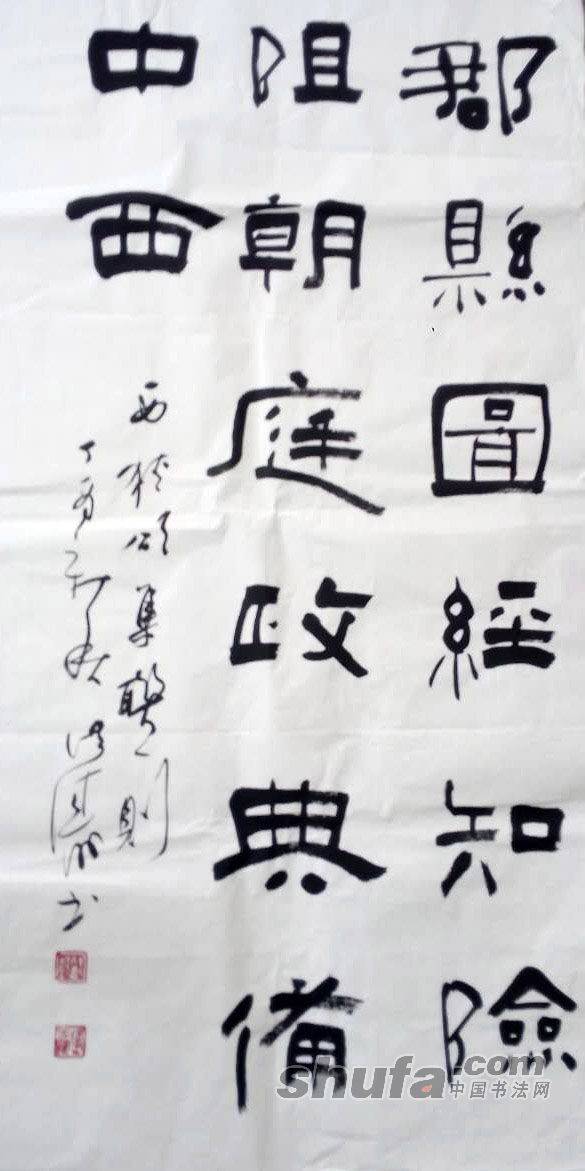 郡縣圖經知險
阻朝庭政典備
中西
西狹頌集聯一則
丁酉初秋
书
shufa.com
中国书法网